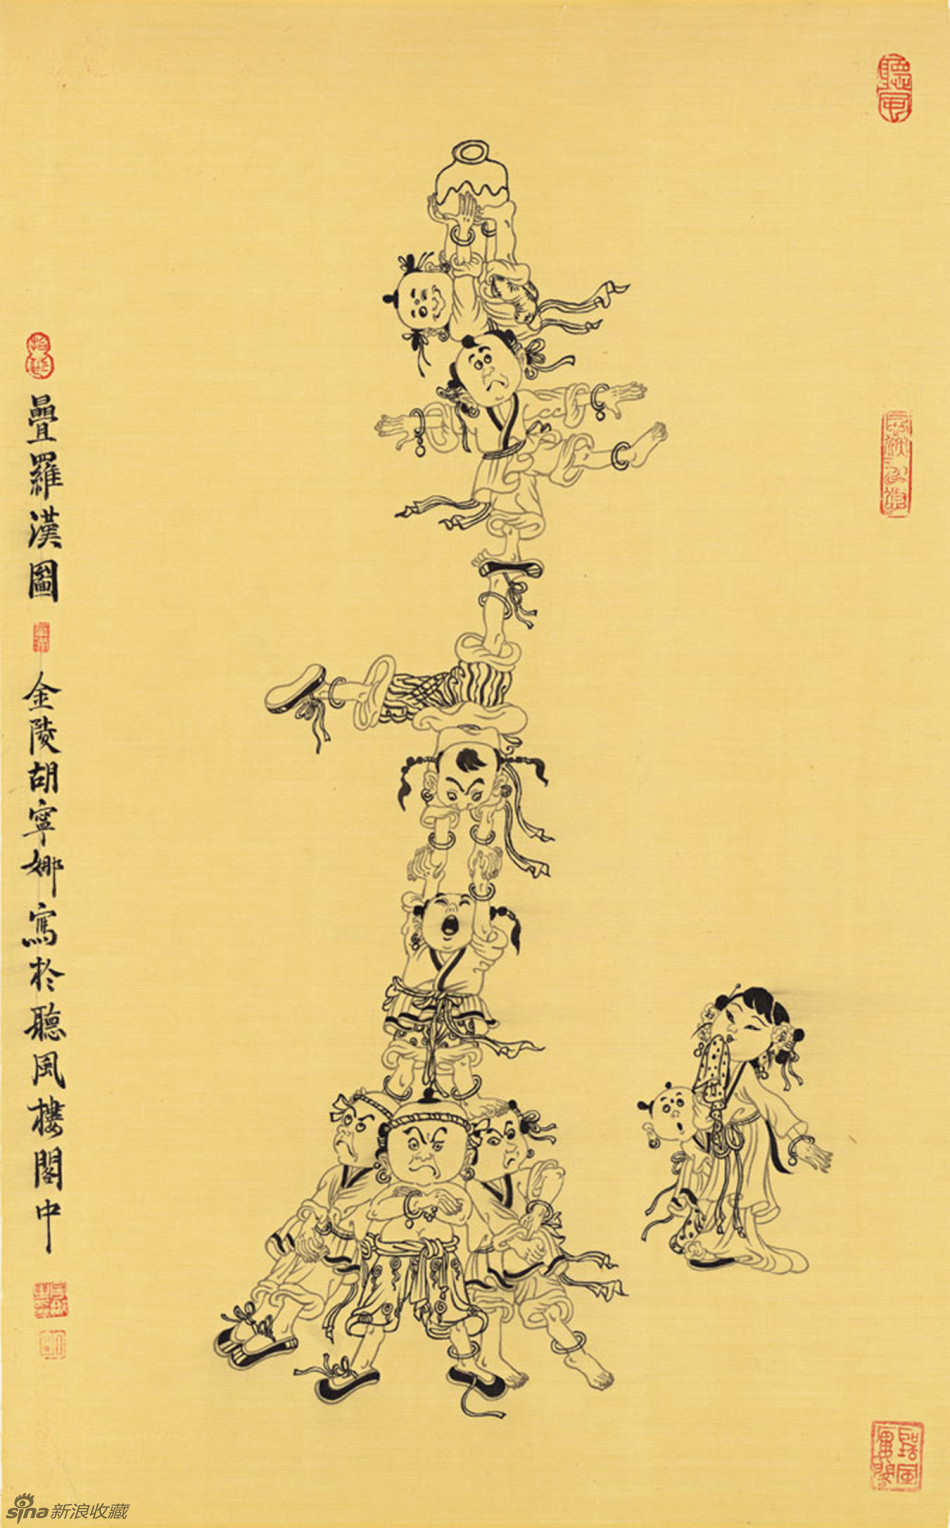 聽風
疊羅漢圖
金陵胡寧娜寫於聽風樓閣中
聽風樓閣
sina新浪收藏